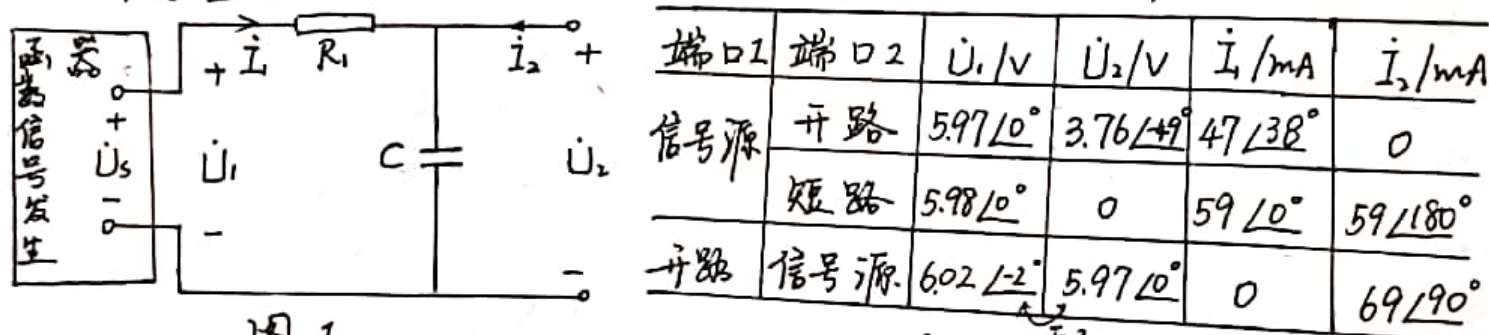 函数信号发生器
+
U̇s
-
+
U̇₁
-
İ₁
R₁
C
İ₂
+
U̇₂
-
图1
端口1 端口2 U̇₁/V U̇₂/V İ₁/mA İ₂/mA
信号源 开路 5.97∠0° 3.76∠-49° 47∠38° 0
短路 5.98∠0° 0 59∠0° 59∠180°
开路 信号源 6.02∠-2° 5.97∠0° 0 69∠90°